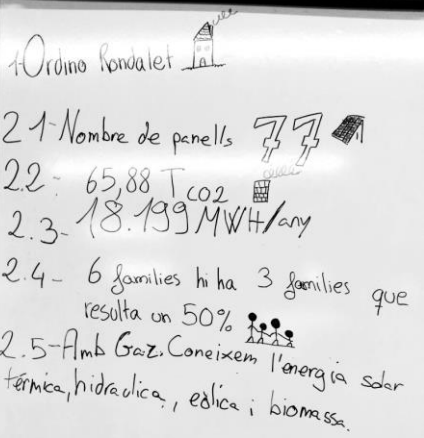 1-Ordino Rondalet
2 1-Nombre de panells 77
2.2- 65,88 T CO2
2.3- 18.199 MWH/any
2.4- 6 families hi ha 3 families que
resulta un 50%
2.5-Amb Gaz. Coneixem l'energia solar
térmica, hidraulica, eòlica i biomassa.